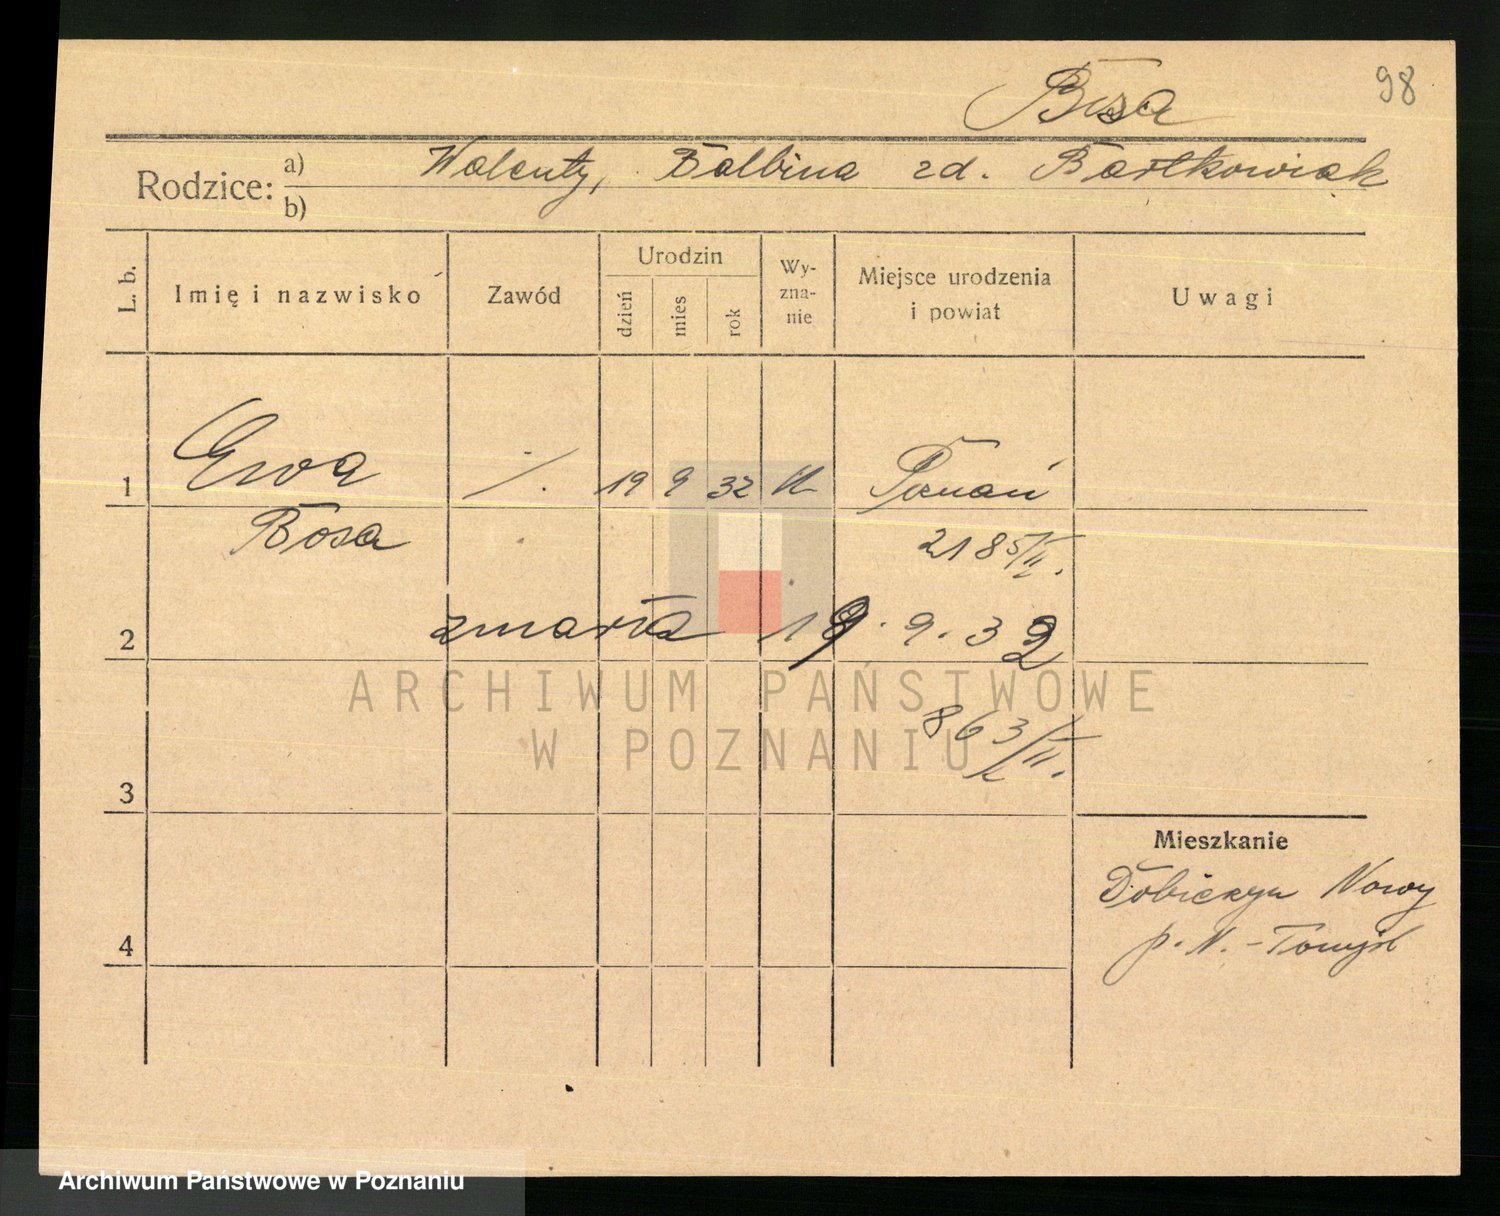 98
Bosa
Rodzice: a) Walenty, Balbina zd. Bartkowiak
b)
L. b. Imię i nazwisko Zawód Urodzin dzień mies rok Wy-zna-nie Miejsce urodzenia i powiat Uwagi
1 Ewa ./. 19 9 32 k Poznań
Bosa 2185/II.
2 zmarła 19. 9. 32
863/II.
3
Mieszkanie
Nowy
4 p. N.-Tomyśl
ARCHIWUM PAŃSTWOWE
W POZNANIU
Archiwum Państwowe w Poznaniu